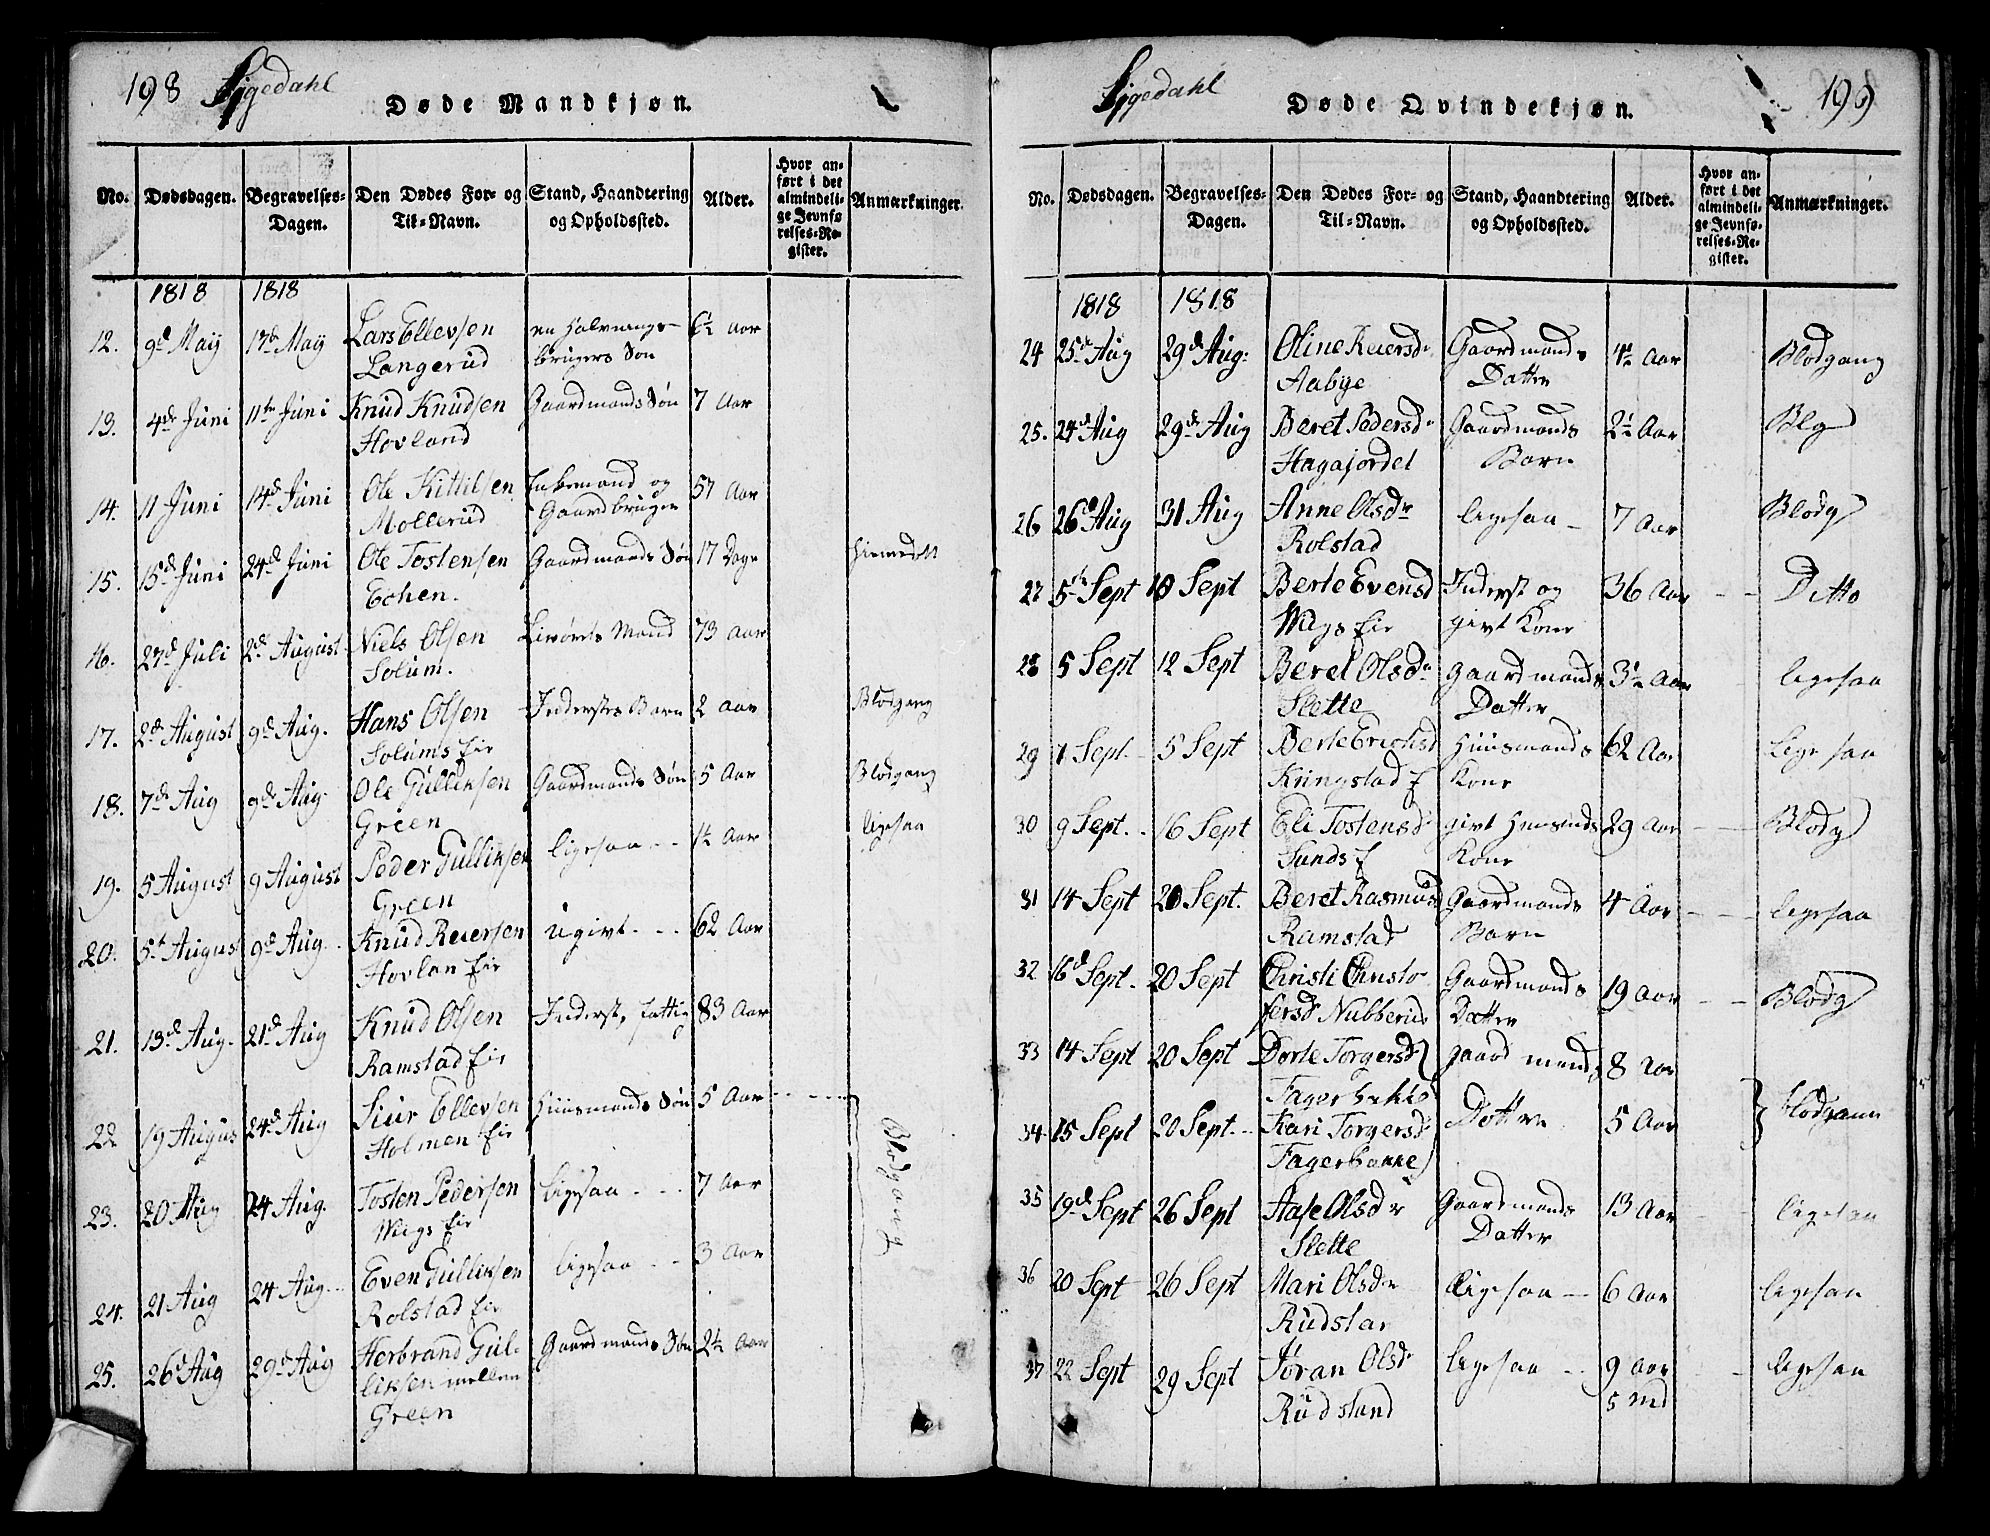 198 Sigedahl
Døde Mandkjøn.
No. Dødsdagen. Begravelses-Dagen. Den Dødes For- og Til-Navn. Stand, Haandtering og Opholdssted. Alder. Hvor anført i det almindelige Jevnførelses-Register. Anmærkninger.
1818 1818
12. 9d May 17de May Lars Ellevsen en Halvmags- 6½ Aar
Langerud brugers Søn
13. 4de Juni 11te Juni Knud Knudsen Gaardmands Søn 7 Aar
Hovland
14. 11 Juni 14de Juni Ole Kittilsen Enkemand og 57 Aar
Mollerud Gaardbruger
15. 15de Juni 24de Juni Ole Tostensen Gaardmands Søn 17 Dage Hiemedøbt
Echen.
16. 27d Juli 2de August Niels Olsen Livørets Mand 73 Aar
Solum.
17. 2de August 9de Aug. Hans Olsen Inderstes Barn 2 Aar Blodgang
Solums Eie
18. 7de Aug 9de Aug. Ole Gulliksen Gaardmands Søn 5 Aar Blodgang
Green
19. 5 August 9 August Peder Gulliksen ligesaa 1½ Aar ligesaa
Green
20. 5t August 9de Aug. Knud Reiersen Ugivt 62 Aar
Hovlan Eie
21. 13de Aug. 21de Aug Knud Olsen Inderst, fattig 83 Aar
Ramstad Eie
22 19 Augus 24de Aug Siur Ellevsen Huusmands Søn 5 Aar Blodgang
Holmen Eie
23. 20 Aug 24 Aug. Tosten Pedersen ligesaa 7 Aar
Wiigs Eie
24. 21 Aug 24 Aug. Even Gulliksen ligesaa 3 Aar
Rolstad Eie
25. 26d Aug 29de Aug Herbrand Gul- Gaardmands Søn 2½ Aar
liksen mellem
Green
Sigedahl 199
Døde Qvindekjøn.
No. Dødsdagen. Begravelses-Dagen. Den Dødes For- og Til-Navn. Stand, Haandtering og Opholdssted. Alder. Hvor anført i det almindelige Jevnførelses-Register. Anmærkninger.
1818 1818
24 25de Aug 29de Aug: Oline Reiersdr Gaardmands 4½ Aar Blodgang
Aabye Datter
25. 24d Aug 29de Aug Beret Pedersdr Gaardmands 2½ Aar Blg
Hagajordet Barn
26 26d Aug 31 Aug Anne Olsdr ligesaa 7 Aar Blodg
Rolstad
27 5te Sept 10 Sept Berte Evensd Inderst og 36 Aar Ditto
Wigs Eie givt Kone
28 5 Sept 12 Sept Beret Olsdr Gaardmands 3½ Aar ligesaa
Slette Datter
29 1 Sept. 5 Sept Berte Erichsd Huusmands 62 Aar ligesaa
Kringstad E Kone
30 9 Sept. 16 Sept Eli Tostensd givt Huusmds 29 Aar Blodg
Sunds E Kone
31 14 Sept 20 Sept. Beret Rasmusd Gaardmands 4 Aar ligesaa
Ramstad Barn
32 16d Sept. 20 Sept Christi Christo- Gaardmands 19 Aar Blodg
fersd Nubberud Datter
33 14 Sept 20 Sept Dorte Torgersd gaardmands 8 Aar
Fagerbakke
34. 15 Sept 20 Sept. Kari Torgersd Dottre 5 Aar Blodgann
Fagerbakke
35 19de Sept 26 Sept Aase Olsdr Gaardmands 13 Aar ligesaa
Slette Datter
36 20 Sept 26 Sept Mari Olsdr ligesaa 6 Aar ligesaa
Rudstan
37 22 Sept 29 Sept Jøran Olsdr ligesaa 9 Aar ligesaa
Rudstand 5 Md